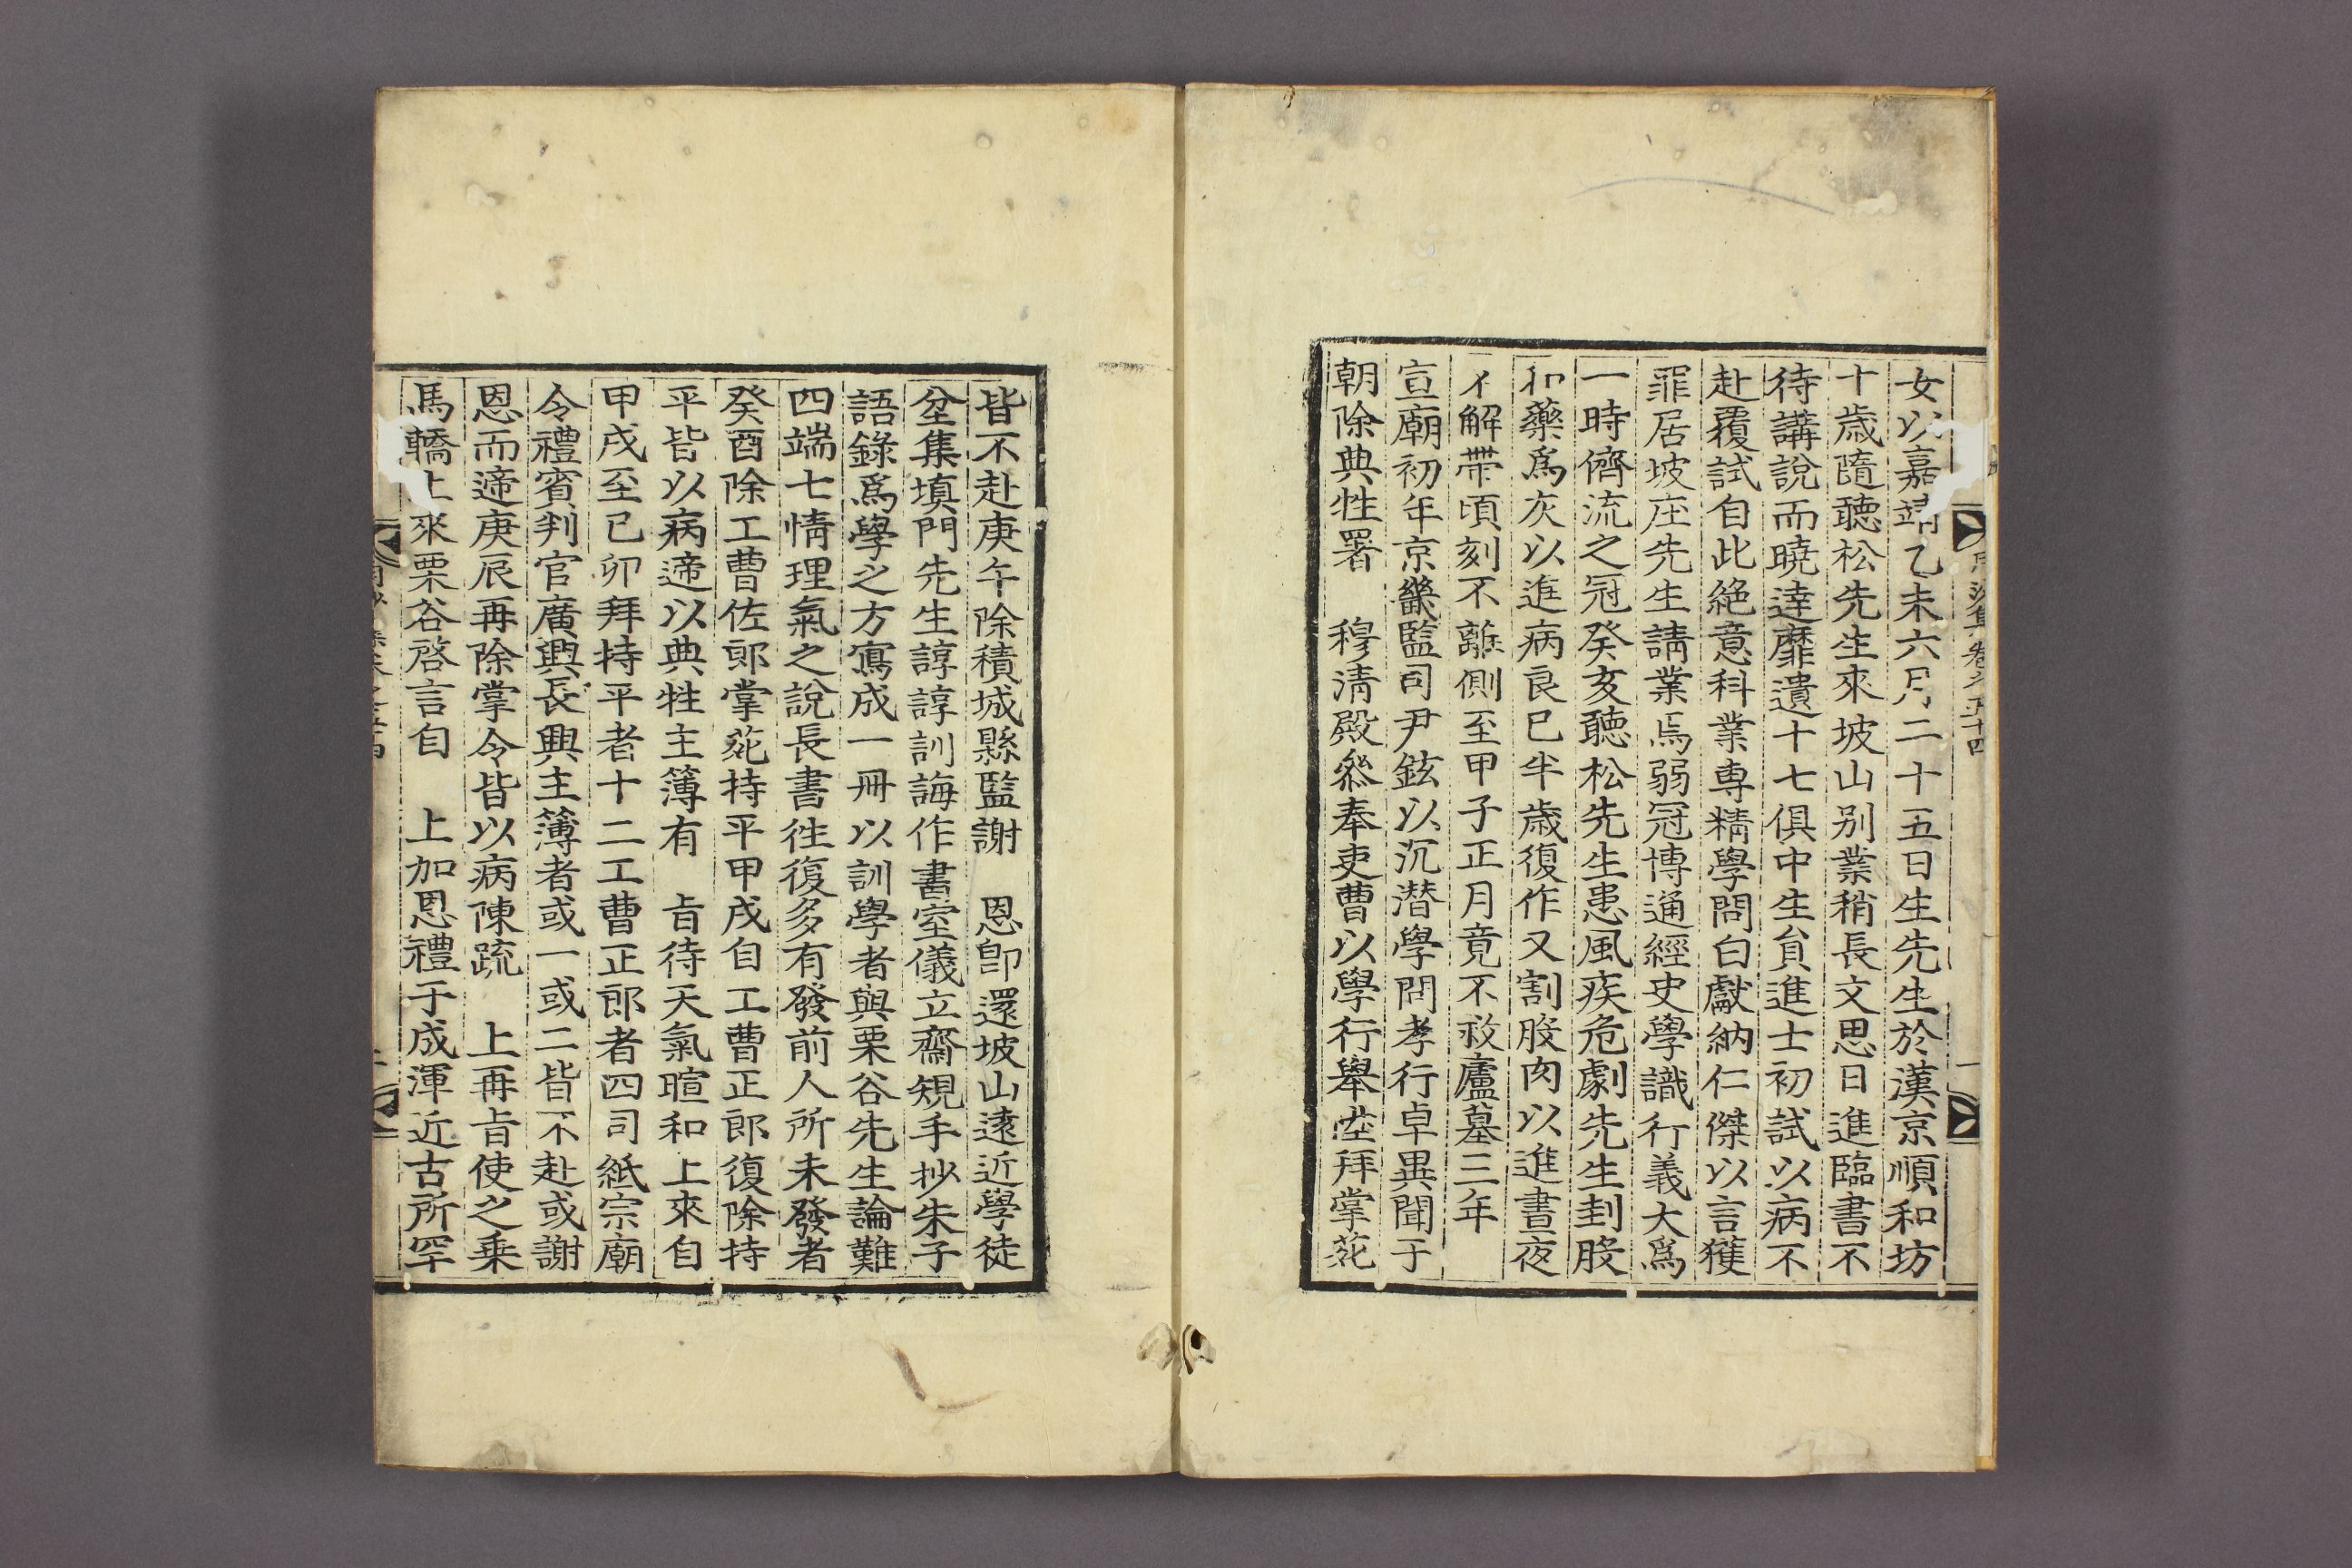 女以嘉靖乙未六月二十五日生先生於漢京順和坊
十歲隨聽松先生來坡山別業稍長文思日進臨書不
待講說而曉達靡遺十七俱中生員進士初試以病不
赴覆試自此絶意科業専精學問白獻納仁傑以言獲
罪居坡庄先生請業焉弱冠博通經史學識行義大爲
一時儕流之冠癸亥聽松先生患風疾危劇先生刲股
和藥爲灰以進病良已半歲復作又割股肉以進晝夜
不解帶頃刻不離側至甲子正月竟不救廬墓三年
宣廟初年京畿監司尹鉉以沉潛學問孝行卓異聞于
朝除典牲署 穆淸殿叅奉吏曹以學行舉陞拜掌苑
皆不赴庚午除積城縣監謝 恩卽還坡山遠近學徒
坌集塡門先生諄諄訓誨作書室儀立齋䂓手抄朱子
語錄爲學之方寫成一冊以訓學者與栗谷先生論難
四端七情理氣之說長書徃復多有發前人所未發者
癸酉除工曹佐郞掌苑持平甲戌自工曹正郞復除持
平皆以病遞以典牲主簿有 旨待天氣暄和上來自
甲戌至已卯拜持平者十二工曹正郞者四司紙宗廟
令禮賓判官廣興長興主簿者或一或二皆不赴或謝
恩而遞庚辰再除掌令皆以病陳疏 上再旨使之乗
馬轎上來栗谷啓言自 上加恩禮于成渾近古所罕